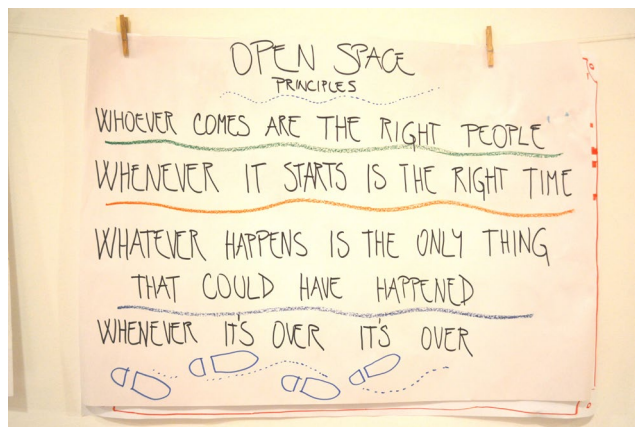 OPEN SPACE
PRINCIPLES
WHOEVER COMES ARE THE RIGHT PEOPLE
WHENEVER IT STARTS IS THE RIGHT TIME
WHATEVER HAPPENS IS THE ONLY THING
THAT COULD HAVE HAPPENED
WHENEVER IT'S OVER IT'S OVER